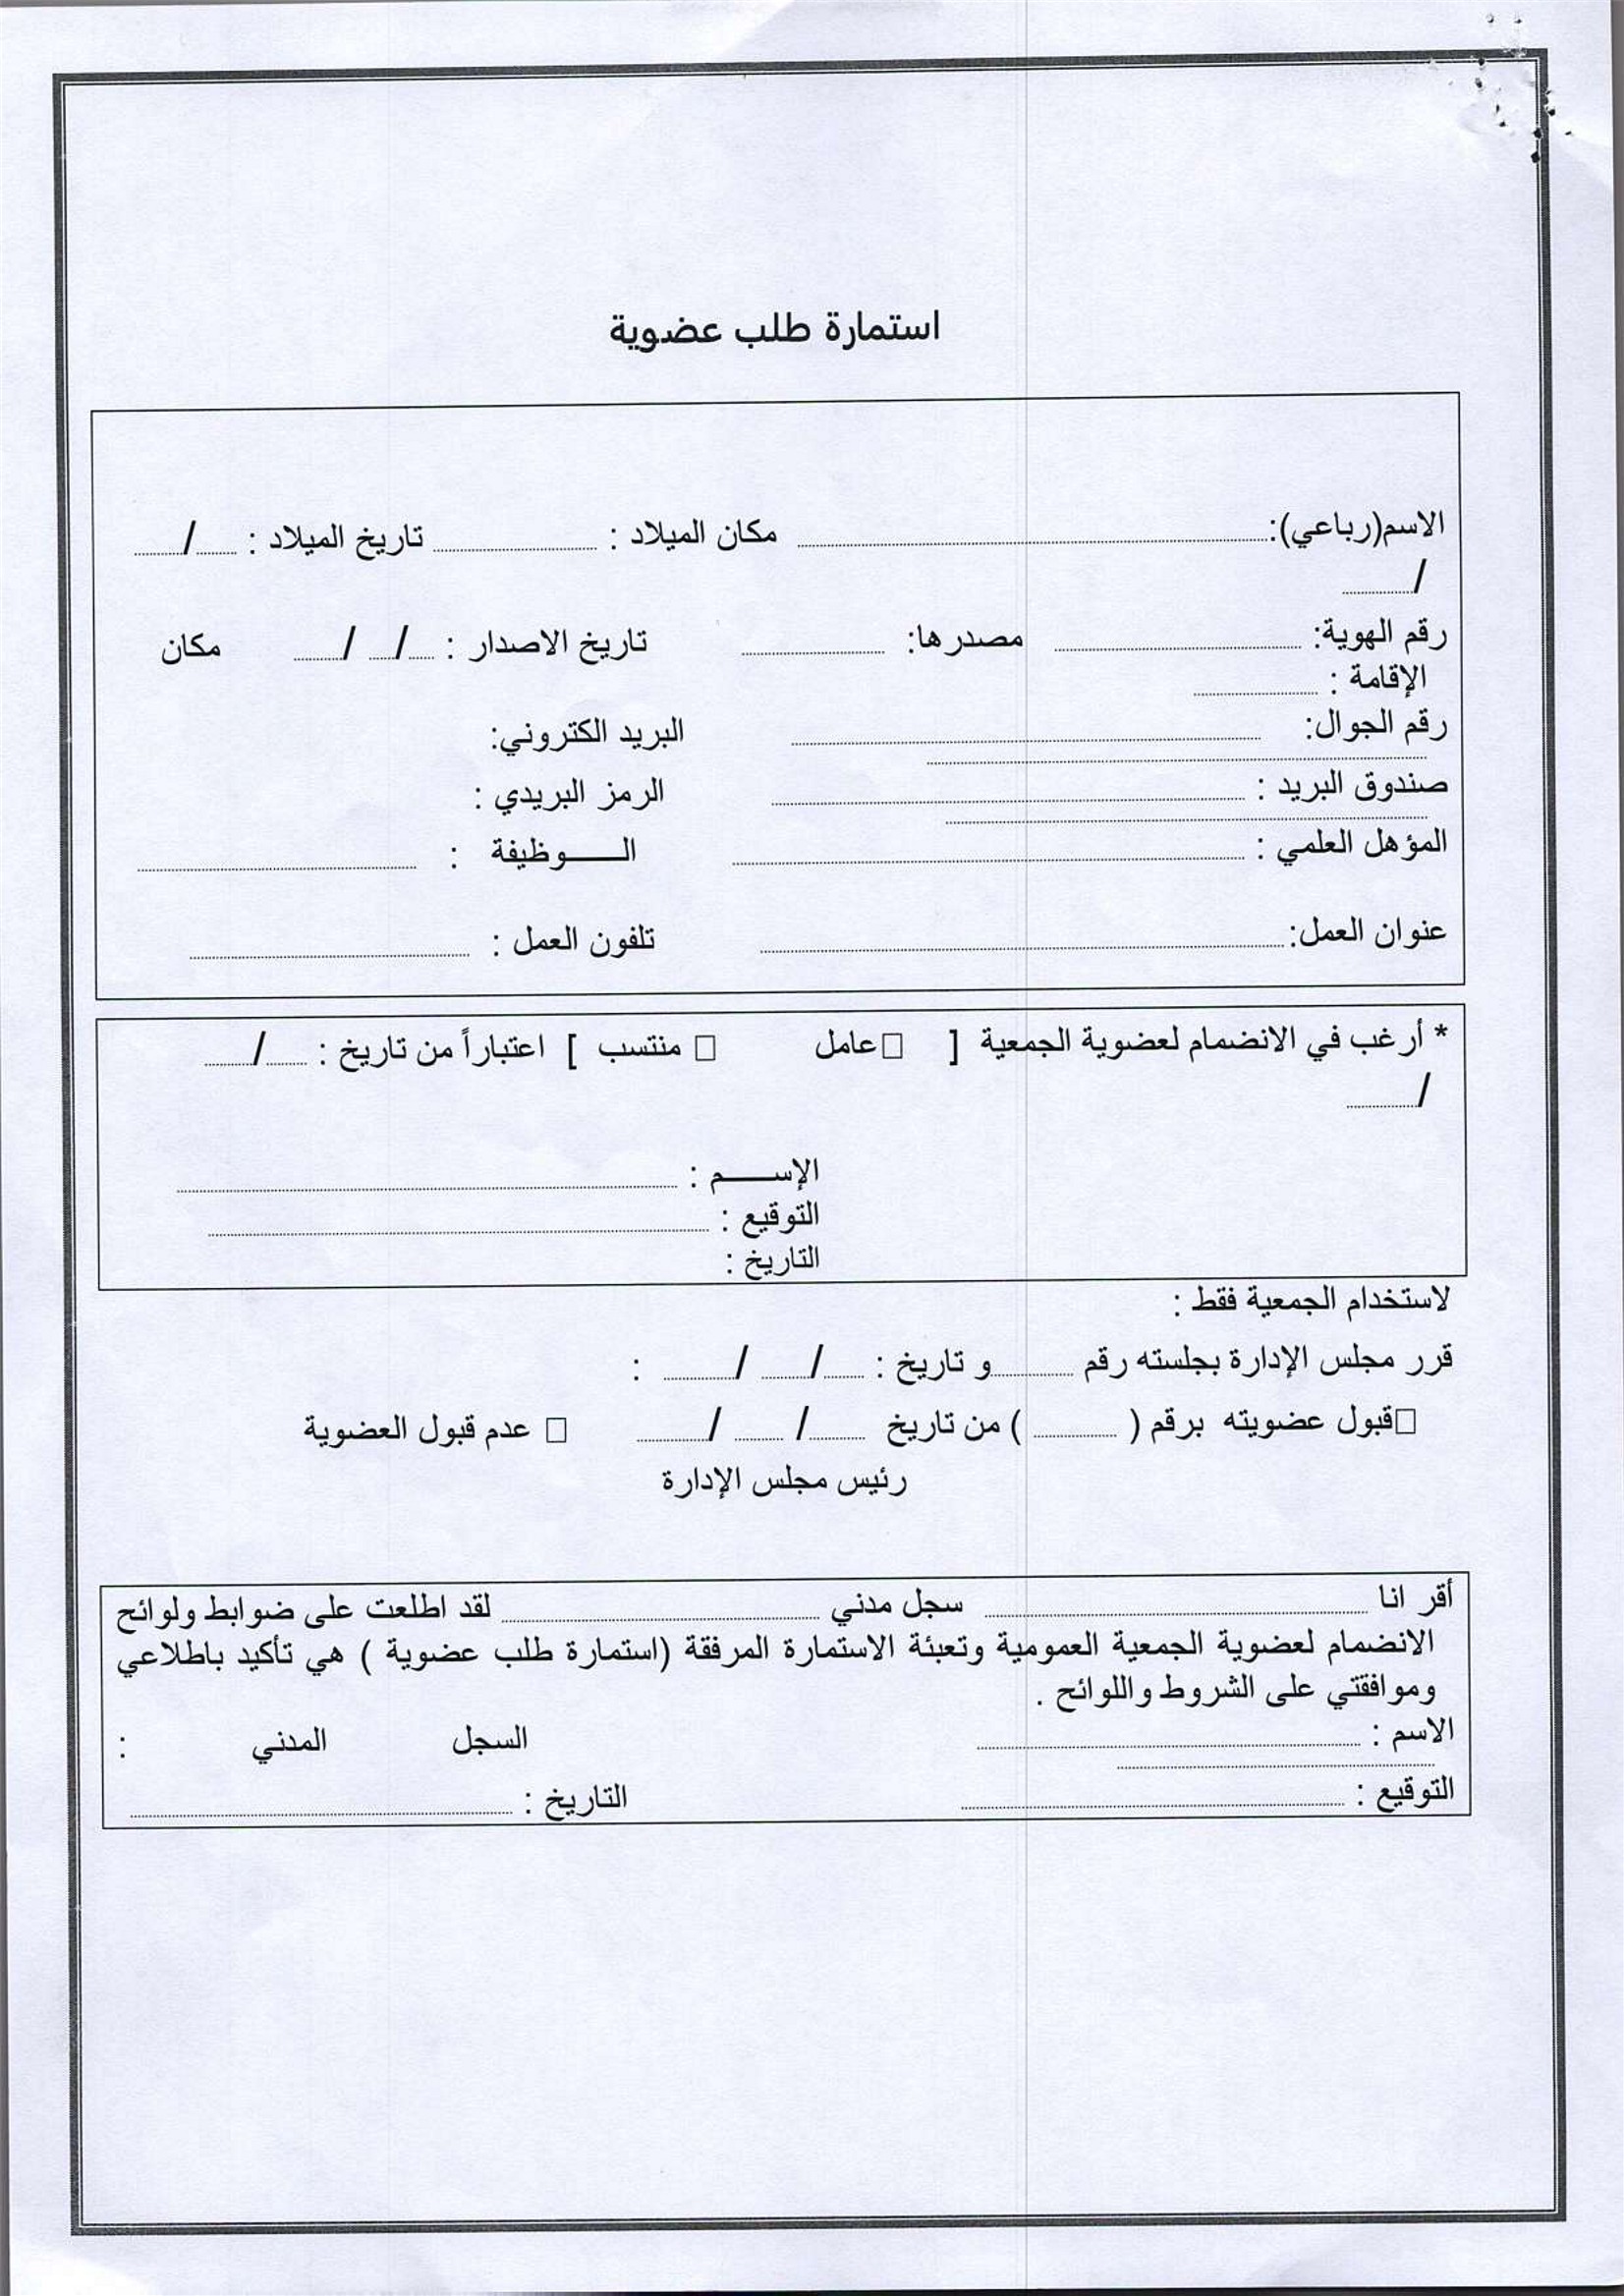 استمارة طلب عضوية
الاسم(رباعي):.......................... مكان الميلاد : .............. تاريخ الميلاد : ....../......
/......
رقم الهوية: .................. مصدرها: ............ تاريخ الاصدار : ..../..../...... مكان
الإقامة : ............
رقم الجوال: .................................. البريد الكتروني:
..................................
صندوق البريد : .................................. الرمز البريدي :
..................................
المؤهل العلمي : .................................. الـــــوظيفة : ......................
عنوان العمل:.................................. تلفون العمل : ......................
* أرغب في الانضمام لعضوية الجمعية [ □عامل □ منتسب ] اعتباراً من تاريخ : ....../......
/......
الإســـــم : ..................................
التوقيع : ..................................
التاريخ :
لاستخدام الجمعية فقط :
قرر مجلس الإدارة بجلسته رقم ..........و تاريخ : ....../....../...... :
□قبول عضويته برقم ( .......... ) من تاريخ ....../....../...... □ عدم قبول العضوية
رئيس مجلس الإدارة
أقر انا .............................. سجل مدني .............................. لقد اطلعت على ضوابط ولوائح
الانضمام لعضوية الجمعية العمومية وتعبئة الاستمارة المرفقة (استمارة طلب عضوية ) هي تأكيد باطلاعي
وموافقتي على الشروط واللوائح .
الاسم : .............................. السجل المدني :
..............................
التوقيع : .............................. التاريخ : ..............................